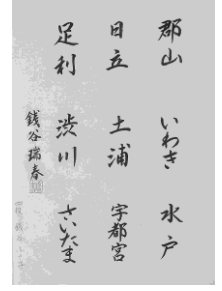 郡山 いわき 水戸
日立 土浦 宇都宮
足利 渋川 さいたま
銭谷瑞春